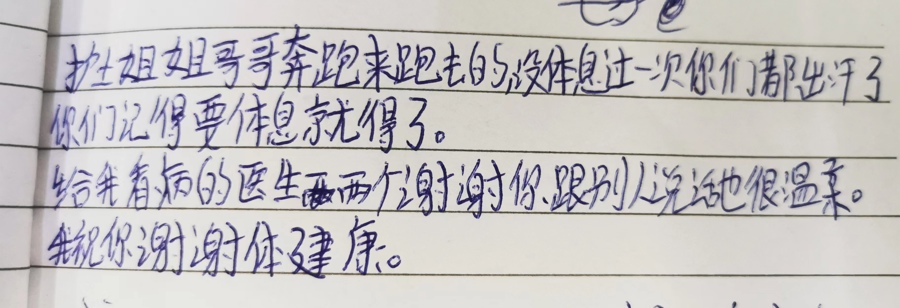 护士姐姐哥哥奔跑来跑去的,没体息过一次你们都出汗了
你们记得要体息就得了。
给我看病的医生两个谢谢你.跟别人说话也很温柔。
我祝你谢谢体建康。